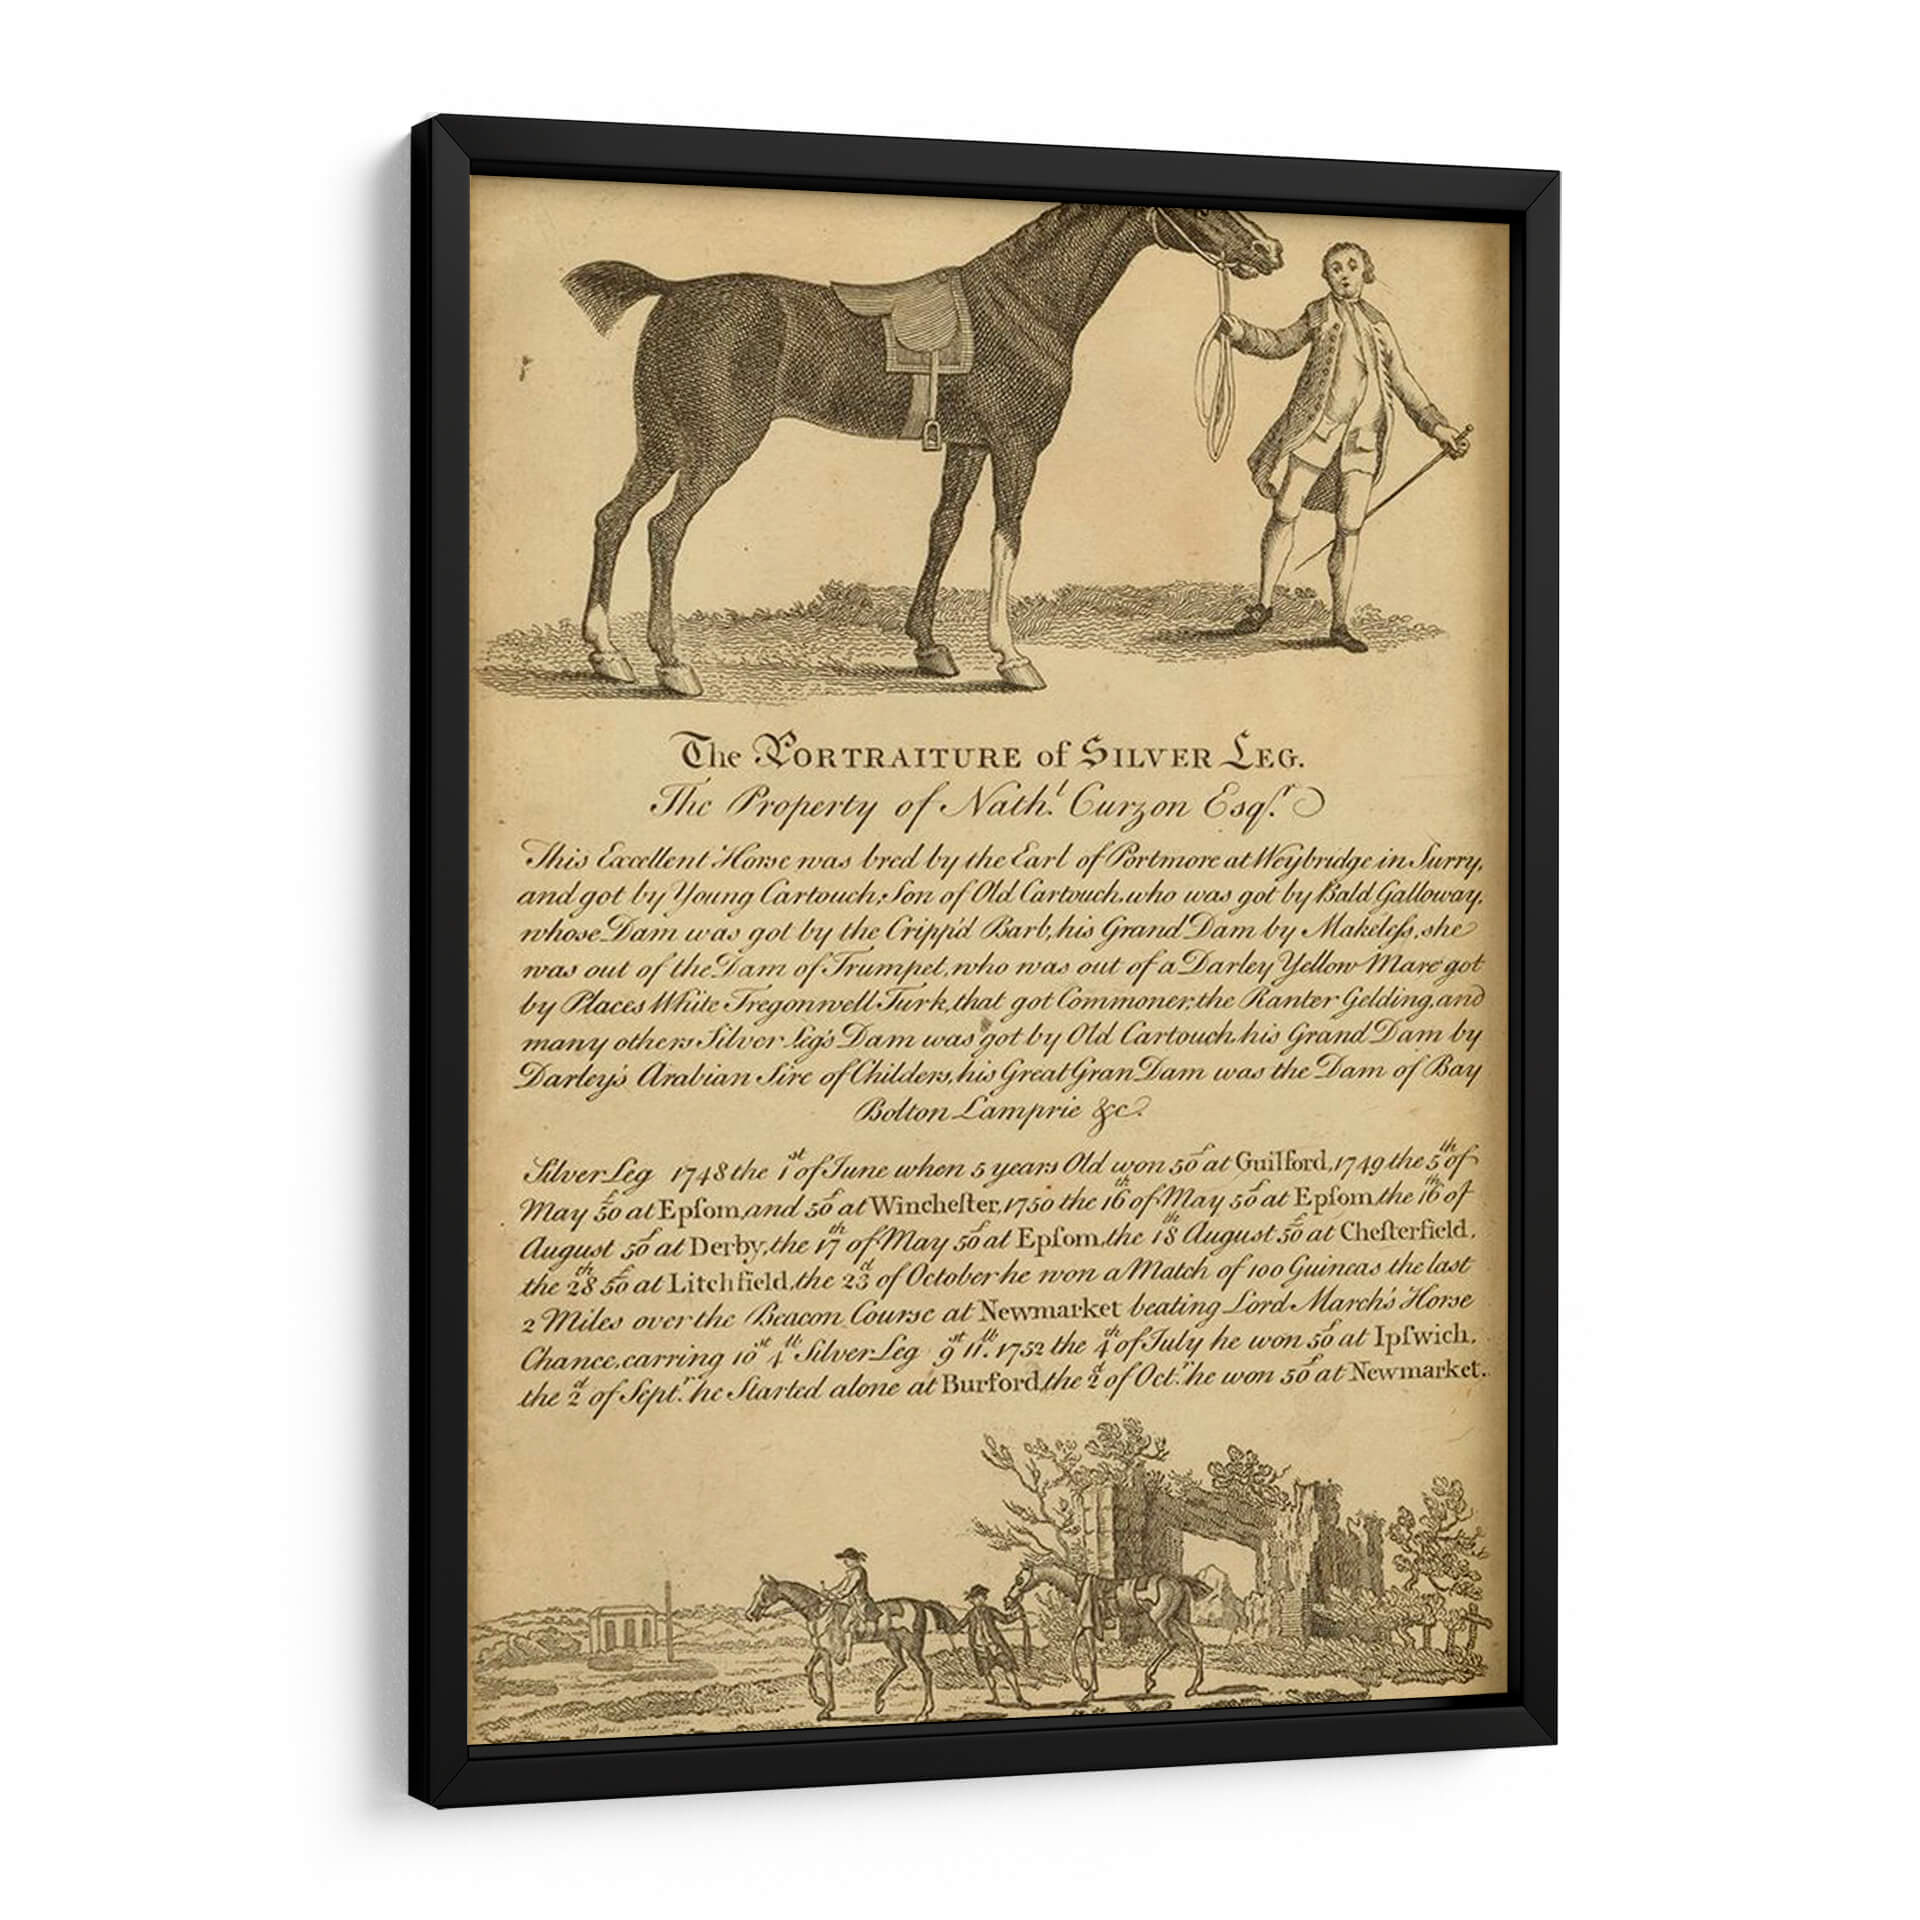 The PORTRAITURE of SILVER LEG.
The Property of Nath.l Curzon Esq.r
This Excellent Horse was bred by the Earl of Portmore at Weybridge in Surry,
and got by Young Cartouch; Son of Old Cartouch, who was got by Bald Galloway,
whose Dam was got by the Cripp'd Barb, his Grand Dam by Makeleſs, she
was out of the Dam of Trumpet, who was out of a Darley Yellow Mare got
by Places White Tregonwell Turk, that got Commoner, the Ranter Gelding, and
many others Silver Leg's Dam was got by Old Cartouch, his Grand Dam by
Darley's Arabian Sire of Childers, his Great Gran Dam was the Dam of Bay
Bolton Lamprie &c.
Silver Leg 1748 the 1st of June when 5 years Old won 50£ at Guilford, 1749 the 5th of
May 50£ at Epſom, and 50£ at Wincheſter, 1750 the 16th of May 50£ at Epſom, the 16th of
August 50£ at Derby, the 17th of May 50£ at Epſom, the 18th August 50£ at Cheſterfield,
the 28th 50£ at Litchfield, the 23d of October he won a Match of 100 Guineas the last
2 Miles over the Beacon Course at Newmarket beating Lord March's Horse
Chance, carring 10st 4lb Silver Leg 9st 11lb. 1752 the 4th of July he won 50£ at Ipſwich,
the 2d of Sept.r he Started alone at Burford, the 2d of Oct.r he won 50£ at Newmarket.